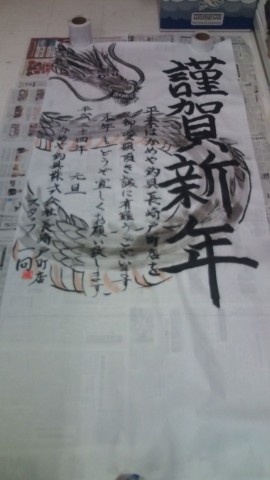 謹賀新年
平素はかめや釣具長崎戸町店を
御愛顧頂き誠に有難うございます
本年もどうぞ宜しくお願い致します
平成二十四年 元旦
かめや釣具株式会社長崎戸町店
スタッフ一同